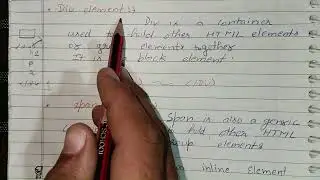 Div element :→
Div is a container
used to hold other HTML elements
or group elements together
It is block element
span
Span is also a generic
hold other HTML
group elements
inline element